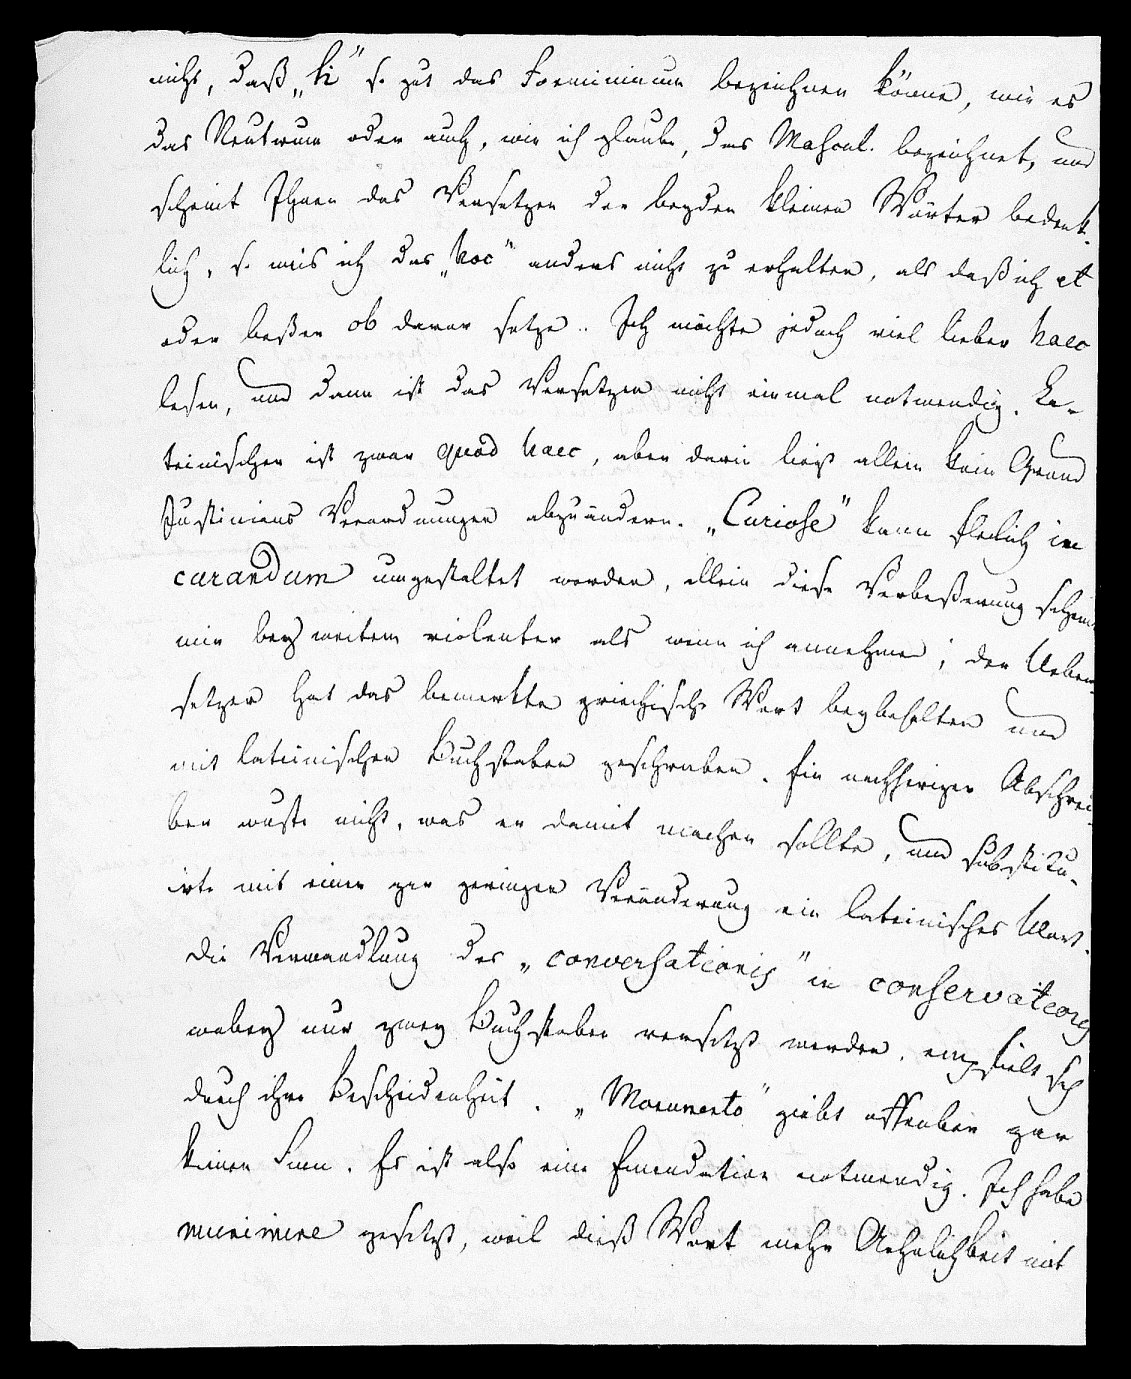 nicht, daß „hi“ so gut das Foemininum bezeichnen könne, wie es
das Neutrum oder auch, wie ich glaube, das Mascul. bezeichnet, und
scheint Ihnen das Versetzen der beyden kleinen Wörter bedenk-
lich, so weis ich das „hoc“ anders nicht zu erhalten, als daß ich et
oder beßer ob davor setze.. Ich möchte jedoch viel lieber haec
lesen, und dann ist das Versetzen nicht einmal notwendig. La-
teinischer ist zwar quod haec, aber darin liegt allein kein Grund
Justinians Verordnungen abzuändern. „Curiose“ kann freilich in
curandum umgestaltet werden, allein diese Verbeßerung scheint
mir bey weitem violenter als wenn ich annehme, der Ueber-
setzer hat das bemerkte griechische Wort beybehalten und
mit lateinischen Buchstaben geschrieben. Ein nachheriger Abschrei-
ber wuste nicht, was er damit machen sollte, und substitu-
irte mit einer gar geringen Veränderung ein lateinisches Wort.
Die Verwandlung des „conversationis“ in conservationis
wobey nur zwey Buchstaben versetzt werden, empfielt sich
durch ihre Bescheidenheit. „Monumento“ giebt offenbar gar
keinen Sinn. Es ist also eine Emendation notwendig. Ich habe
munimine gesetzt, weil dieß Wort mehr Aehnlichkeit mit